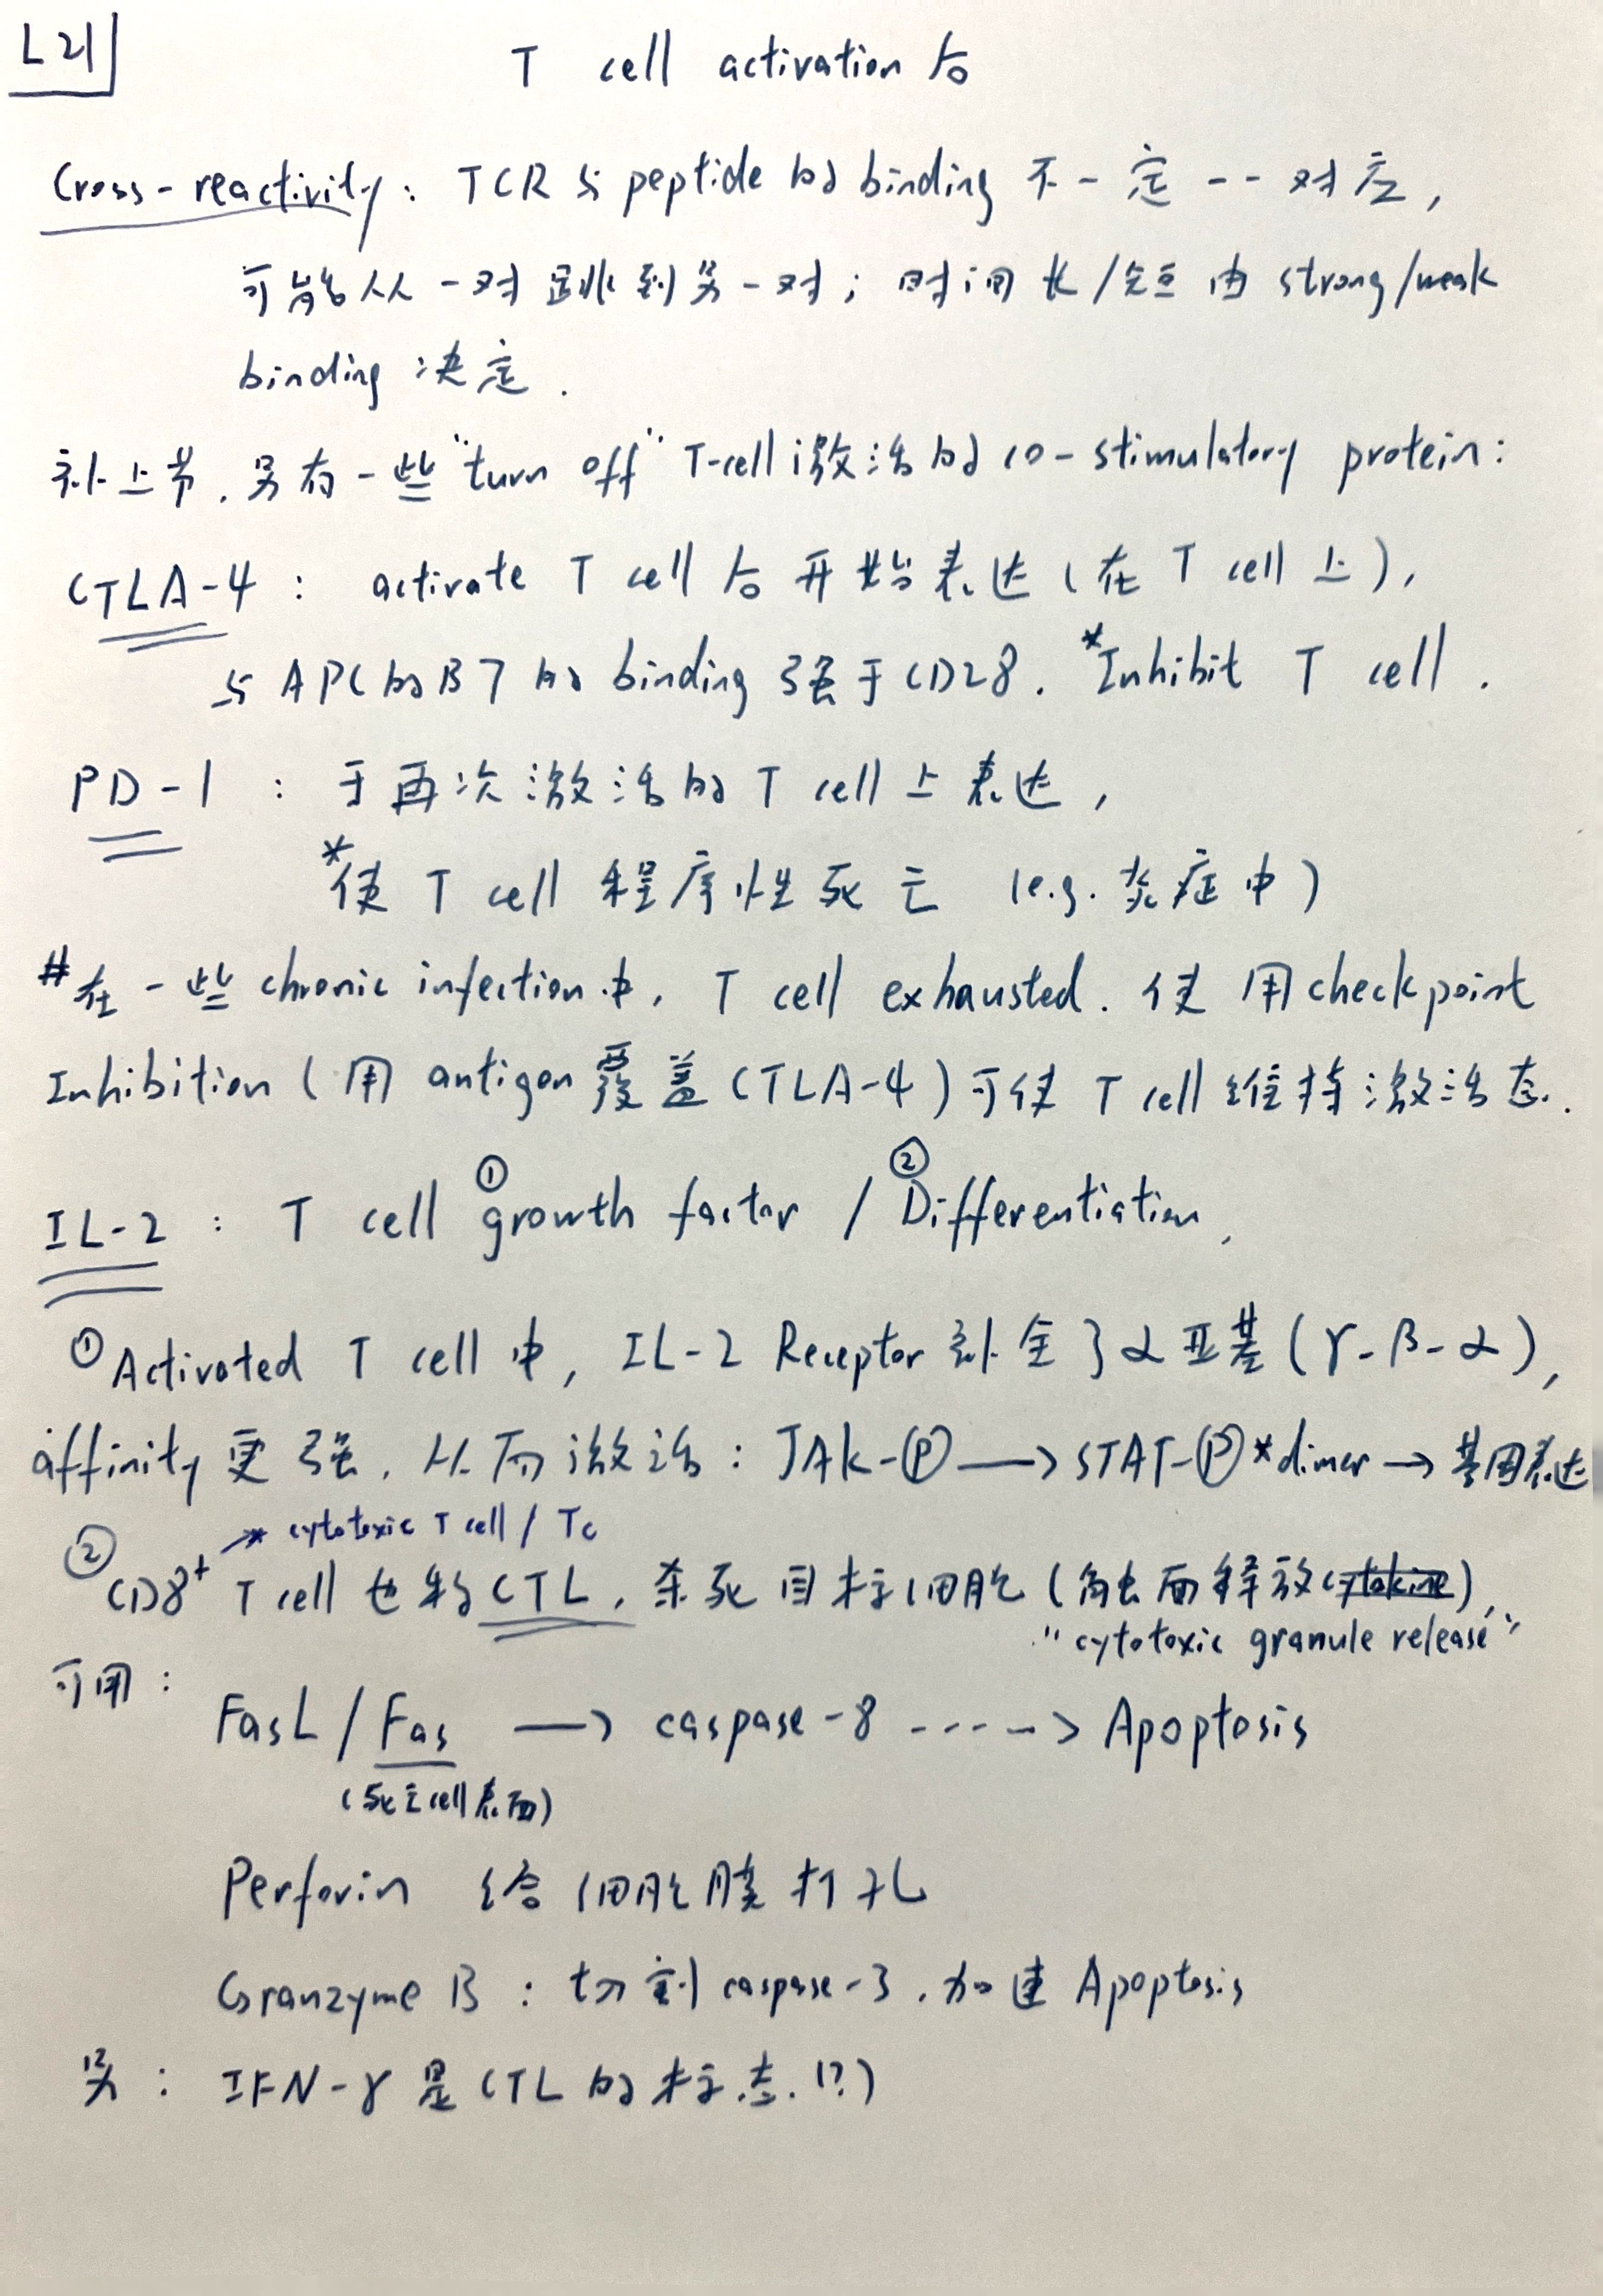 L21
T cell activation后
Cross-reactivity: TCR与peptide的binding不一定一一对应,
可能从一对跳到另一对; 时间长/短由strong/weak
binding决定.
补上节.另有一些"turn off" T-cell激活的co-stimulatory protein:
CTLA-4: activate T cell后开始表达(在T cell上),
与APC的B7的binding强于CD28. *Inhibit T cell.
PD-1: 于再次激活的T cell上表达,
*使T cell程序性死亡 (e.g. 炎症中)
#在一些chronic infection中, T cell exhausted. 使用checkpoint
Inhibition (用antigen覆盖CTLA-4)可使T cell维持激活态.
IL-2: T cell ①growth factor / ②Differentiation,
①Activated T cell中, IL-2 Receptor补全了α亚基(γ-β-α),
affinity更强, 从而激活: JAK-Ⓟ→STAT-Ⓟ*dimer→基因表达
→*cytotoxic T cell / Tc
②CD8⁺ T cell也称CTL, 杀死目标细胞(触电而释放cytokine),
"cytotoxic granule release"
可用:
FasL / Fas → caspase-8 ----> Apoptosis
(死亡cell表面)
Perforin 给细胞膜打孔
Granzyme B: 切割caspase-3, 加速Apoptosis
另: IFN-γ是CTL的标志.(?)